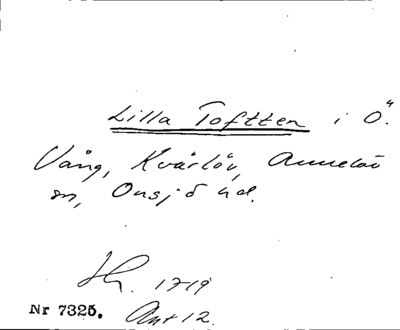 Lilla Toftten i Ö.
Vång, Kvärlöv, Annelöv
sn, Onsjö hd.
1719
Nr 7325. Ant 12.